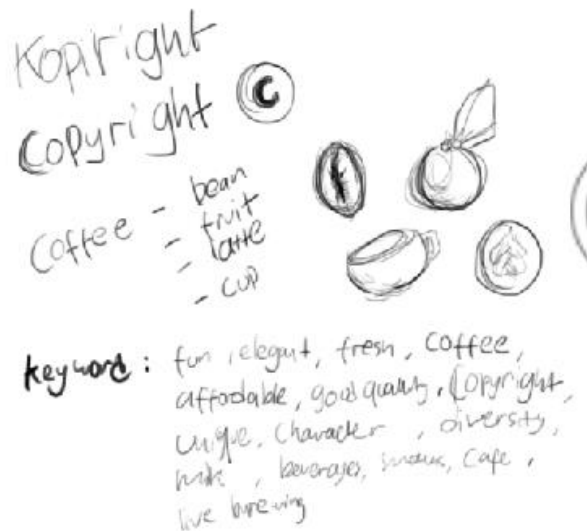 Kopiright
Copyright
C
Coffee - bean
- fruit
- latte
- cup
keyword : fun, elegant, fresh, coffee,
affordable, good quality, Copyright,
unique, character, diversity,
milk, beverages, cafe,
live brewing